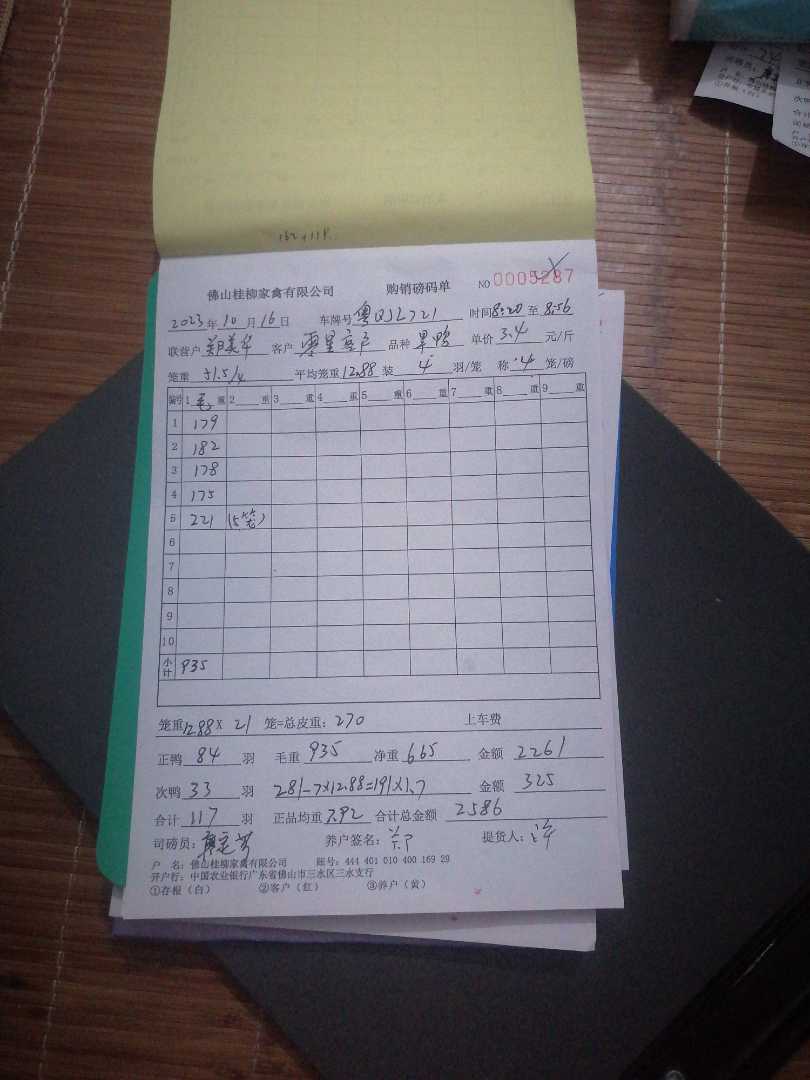 132+118
佛山桂柳家禽有限公司 购销磅码单 NO 0005287
2023年10月16日 车牌号粤QJL721 时间8:20至8:56
联营户郑美华 客户零星客户 品种 单价3.4元/斤
笼重51.5/4 平均笼重12.88装4羽/笼 称4笼/磅
编号 1毛重 2重 3重 4重 5重 6重 7重 8重 9重
1 179
2 182
3 178
4 175
5 221 (5笼)
6
7
8
9
10
小计 935
笼重12.88X21笼=总皮重:270 上车费
正鸭84羽 毛重935 净重665 金额2261
次鸭33羽 281-7X12.88=191X1.7 金额325
合计117羽 正品均重7.92 合计总金额2586
司磅员: 养户签名: 提货人:许
户 名:佛山桂柳家禽有限公司 账号:444 401 010 400 169 29
开户行:中国农业银行广东省佛山市三水区三水支行
①存根(白) ②客户(红) ③养户(黄)